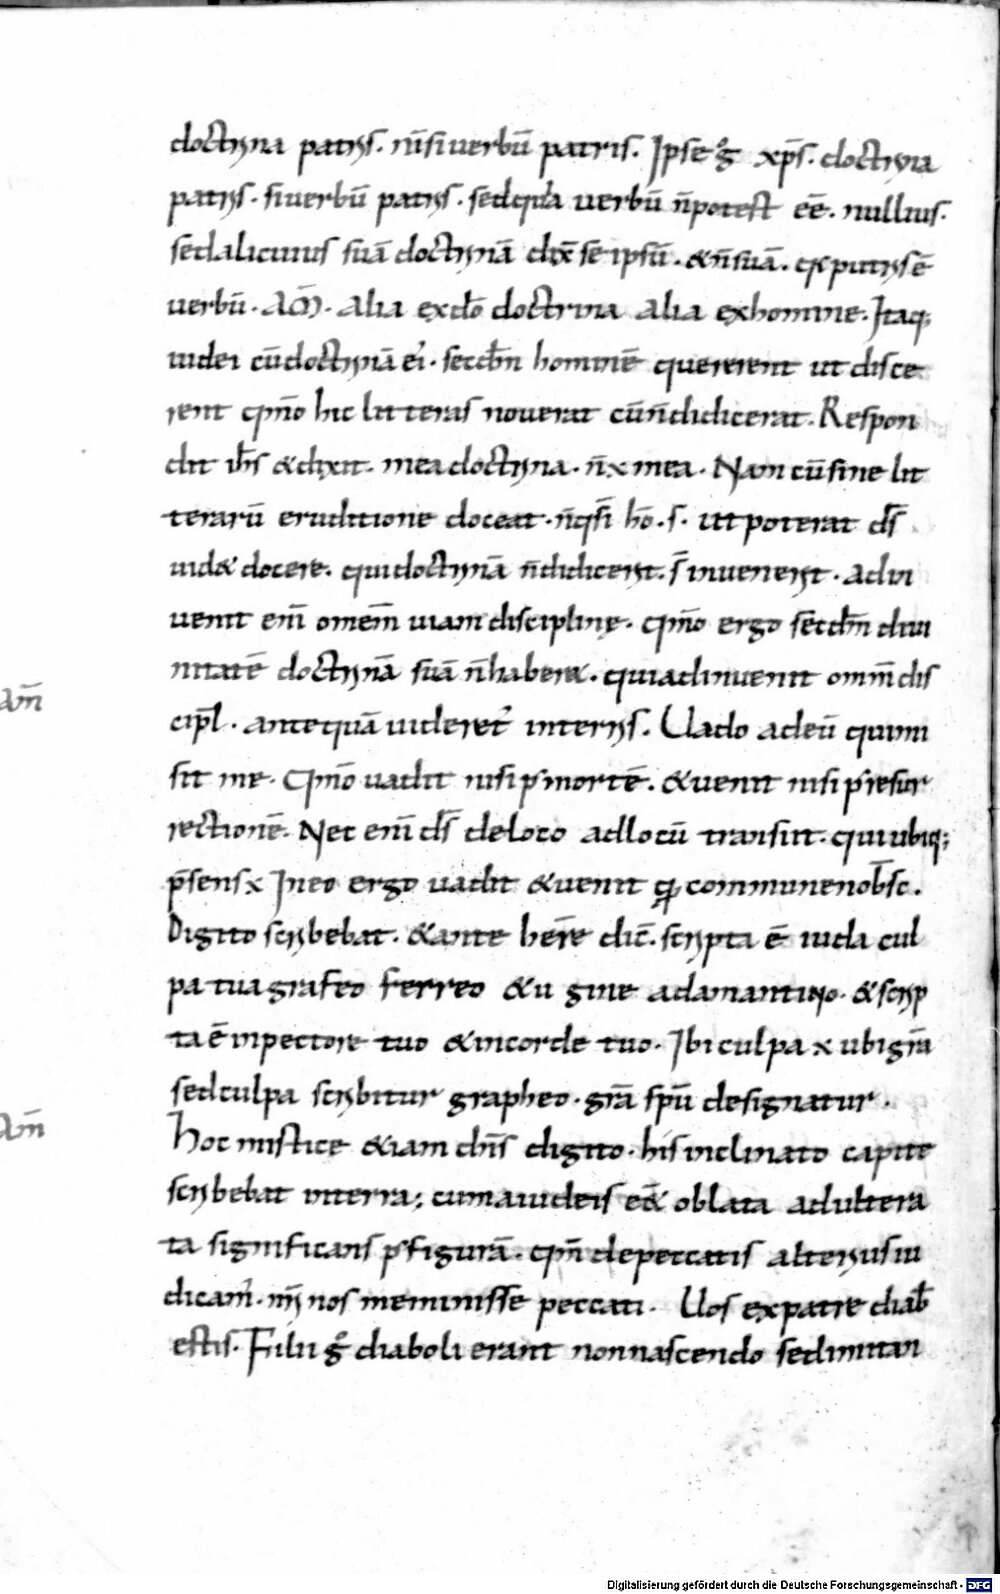 doctrina patris. n̄ si uerbū patris. Ipse g̊ xp̄s. doctrina
patris. si uerbū patris. sed quia uerbū n̄ potest eē. nullius.
sed alicuius suā doctrinā dix̄ se ipsū. & n̄ suā. q̄ patris ē
uerbū. Am̄. Alia ex dō doctrina alia ex homine. Itaq;
iudei cū doctrinā ei'. secdm̄ hominē quererent ut disce
rent qm̄o hic litteras nouerat cū n̄ didicerat. Respon
dit ih̄s & dixit. mea doctrina. n̄ x mea. Nam cū sine lit
terarū eruditione doceat. n̄ q̄si hō. s. ut poterat ds̄
uid& docere. qui doctrinā n̄ didicerit. s̄ inuenerit. Adin
uenit eni̅ omem̄ uiam disciplinę. qm̄o ergo secdm̄ diui
nitatē doctrinā suā n̄ haber&. qui adinuenit omn̄ dis
cipl̄. antequā uideret' in terris. Uado ad eū qui mi
sit me. Qm̄o uadit nisi p' mortē. & uenit nisi p' resur
rectionē. Nec eni̅ ds̄ de loco ad locū transiit. qui ubiq;
p̄sens x In eo ergo uadit & uenit qđ commune nob̄sc.
Digito scribebat. & ante herē dic̄. scripta ē iuda cul
pa tua grafeo ferreo & un gine adamantino. & scrip
ta ē in pectore tuo & in corde tuo. Ibi culpa x ubi grā
sed culpa scribitur grapheo. grā sp̄ū designatur.
Hoc mistice &iam dn̄s digito. his inclinato capite
scribebat in terra; cum a iudeis ee& oblata adultera
ta significans p' figurā. qm̄ de peccatis alterius iu
dicam'. nr̄i nos meminisse peccati. Uos ex patre diab̄
estis. Filii g̊ diaboli erant non nascendo sed imitan
Am̄
Am̄
Digitalisierung gefördert durch die Deutsche Forschungsgemeinschaft - DFG